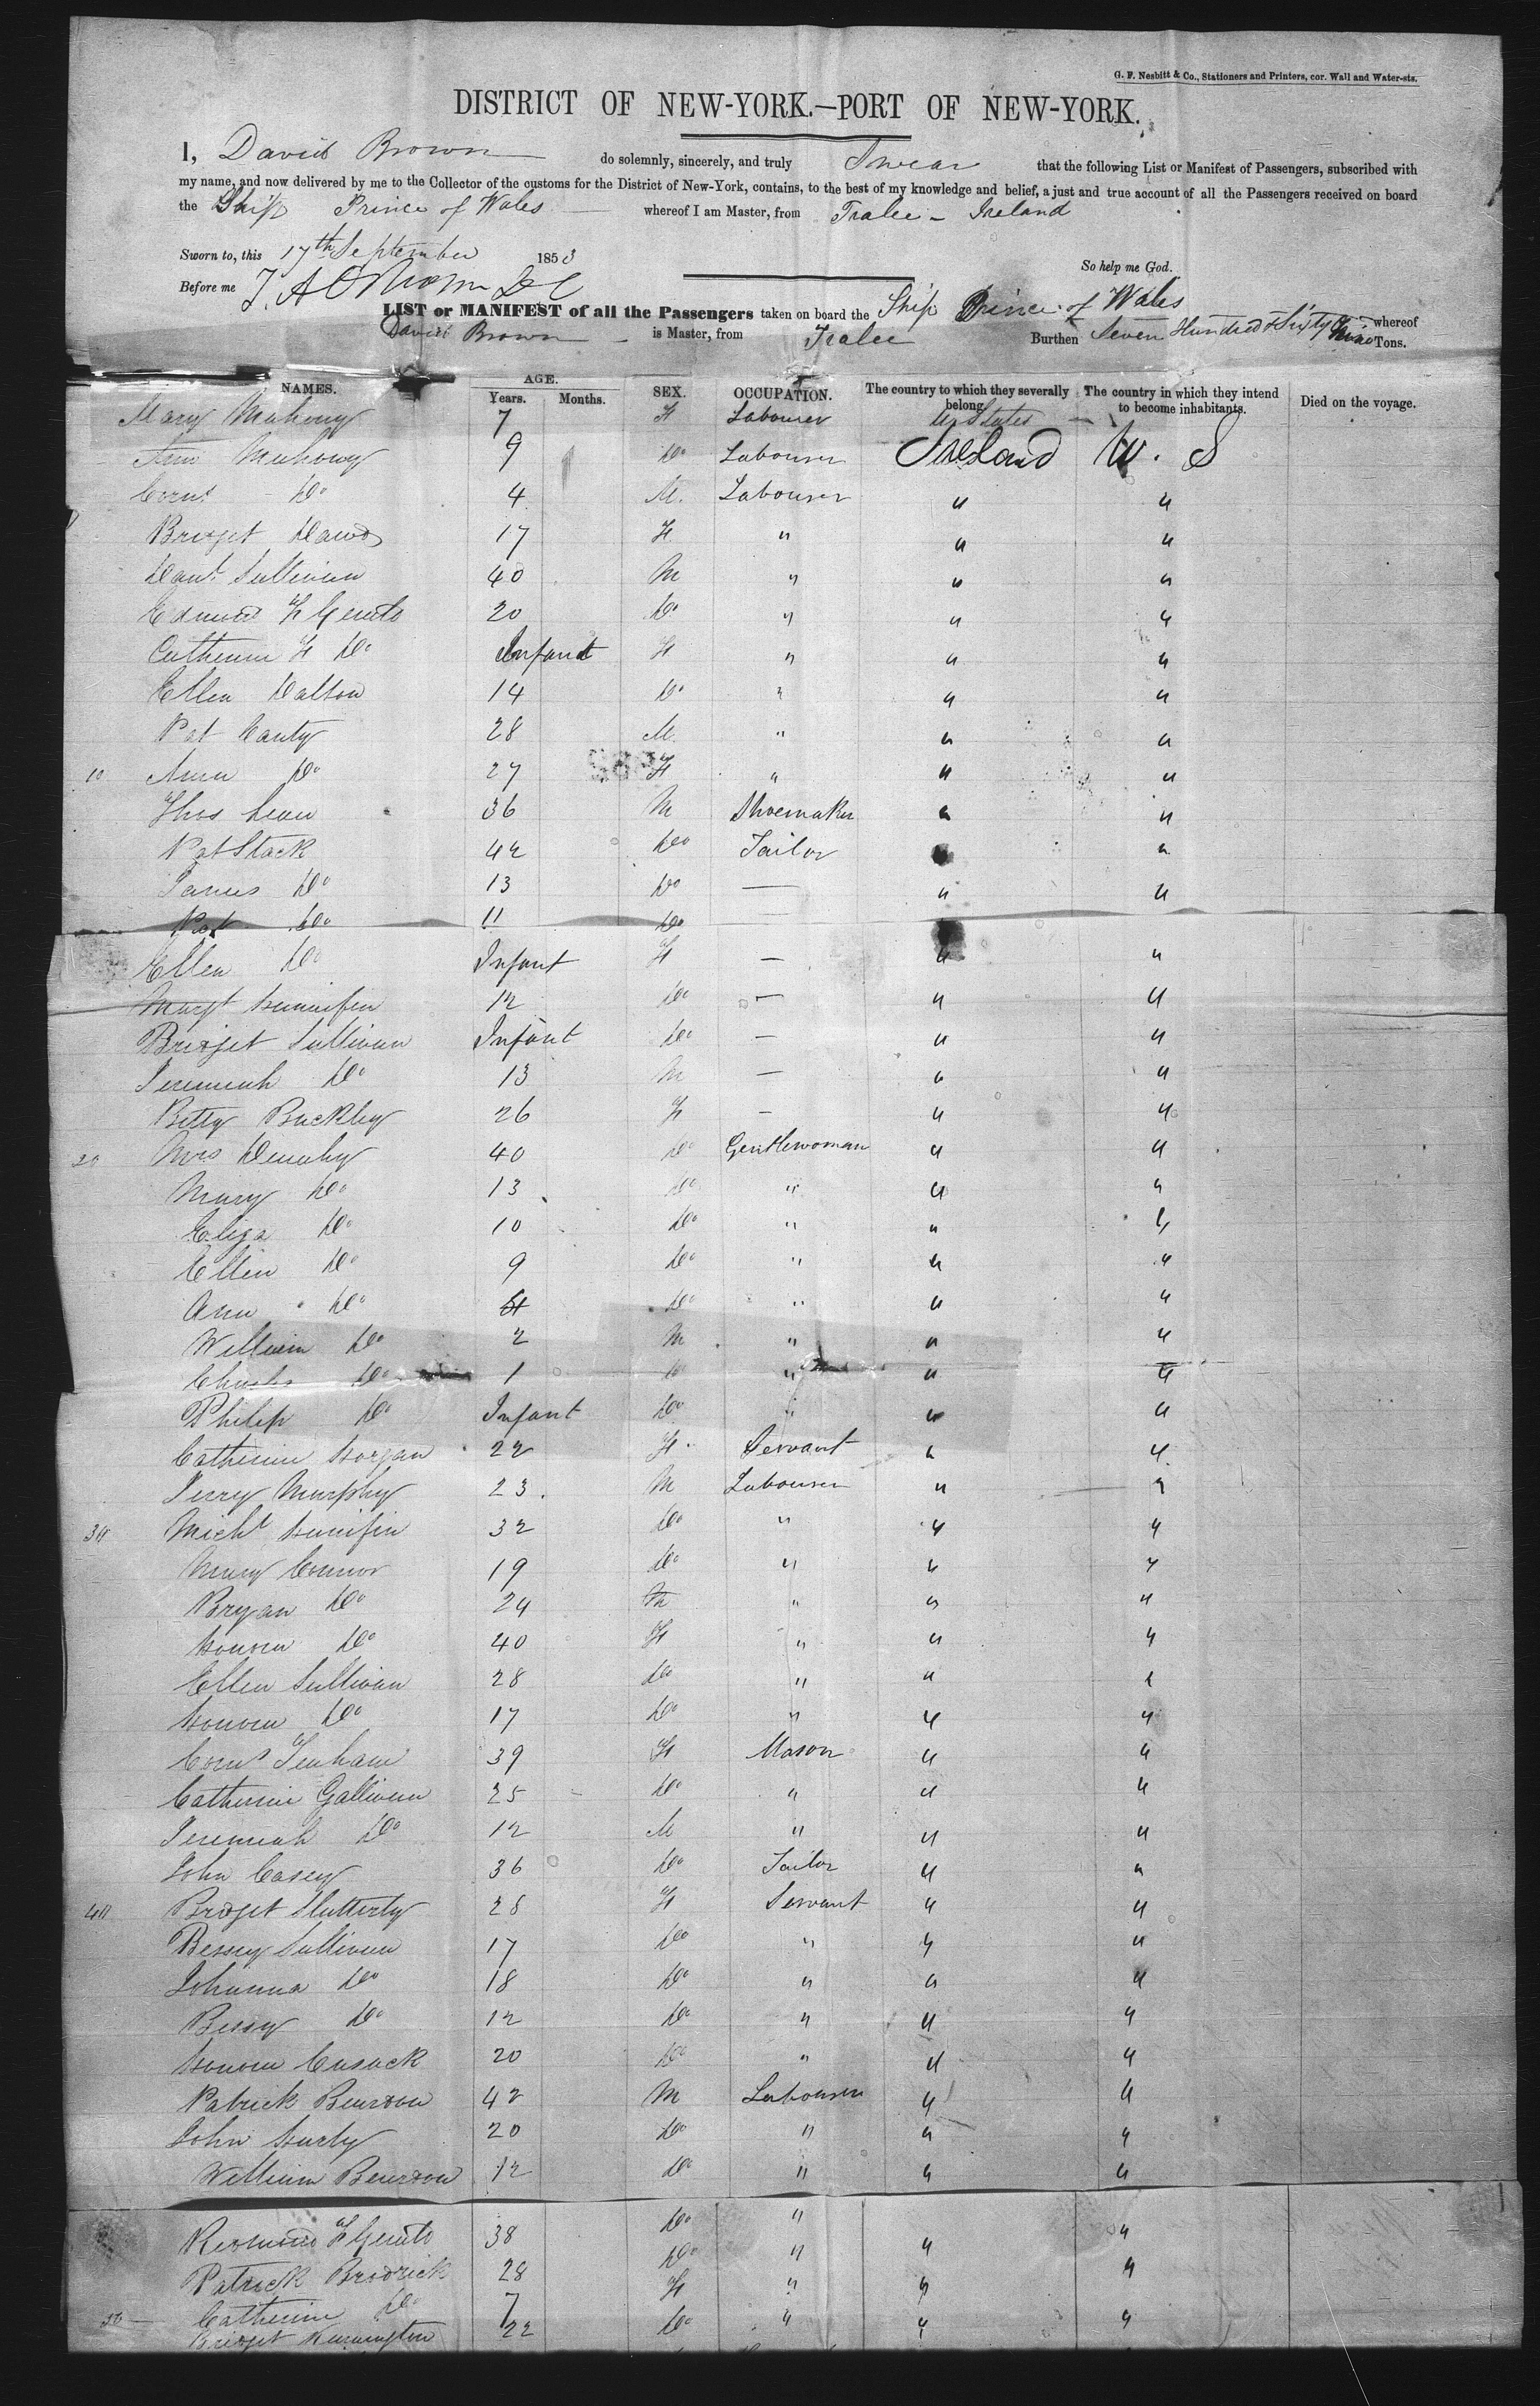 G. F. Nesbitt & Co., Stationers and Printers, cor. Wall and Water-sts.
DISTRICT OF NEW-YORK.—PORT OF NEW-YORK.
I, David Brown do solemnly, sincerely, and truly Swear that the following List or Manifest of Passengers, subscribed with
my name, and now delivered by me to the Collector of the customs for the District of New-York, contains, to the best of my knowledge and belief, a just and true account of all the Passengers received on board
the Ship Prince of Wales whereof I am Master, from Tralee - Ireland
Sworn to, this 17th September 1853
So help me God.
Before me
LIST or MANIFEST of all the Passengers taken on board the Ship Prince of Wales whereof
David Brown is Master, from Tralee Burthen Seven Hundred & Sixty Nine Tons.
NAMES. AGE. Years. Months. SEX. OCCUPATION. The country to which they severally belong. The country in which they intend to become inhabitants. Died on the voyage.
Mary Mahony 7 F Labourer U States
Ann Mahony 9 Do Labourer Ireland U. S
Corns Do 4 M. Labourer " "
Bridget 17 F. " " "
Danl Sullivan 40 M " " "
Edmund F Gerald 20 Do " " "
Catherine F Do Infant F " " "
Ellen Dalton 14 Do " " "
Pat Canty 28 M. " " "
10 Ann Do 27 F " " "
Thos 36 M Shoemaker " "
Pat Stack 42 Do Tailor "
James Do 13 Do — " "
Pat Do 11 Do
Ellen Do Infant F — " "
Margt Hunifin 12 Do — " "
Bridget Sullivan Infant Do — " "
Jeremiah Do 13 M — " "
Betty Buckley 26 F — " "
20 Mrs 40 Do Gentlewoman " "
Mary Do 13 Do " " "
Eliza Do 10 Do " " "
Ellen Do 9 Do " " "
Ann Do Do " " "
William Do 2 M " " "
Charles Do 1 Do " " "
Philip Do Infant Do " " "
Catherine Horgan 22 F Servant " "
Jerry Murphy 23 M Labourer " "
30 Michl Hunifin 32 Do " " "
Mary Connor 19 Do " " "
Bryan Do 24 M " " "
Honora Do 40 F " " "
Ellen Sullivan 28 Do " " "
Honora Do 17 Do " " "
Corns 39 F Mason " "
Catherine Gallivan 25 Do " " "
Jeremiah Do 12 M " " "
John Casey 36 Do Tailor " "
40 Bridget Slatterly 28 F Servant " "
Bessey Sullivan 17 Do " " "
Johanna Do 18 Do " " "
Bessy Do 12 Do " " "
Honora Cusack 20 Do " " "
Patrick 42 M Labourer " "
John Hurly 20 Do " " "
William 12 Do " " "
Redmond F Gerald 38 Do " " "
Patrick Brodrick 28 Do " "
50 Catherine Do 7 F " " "
Bridget 22 Do " " "